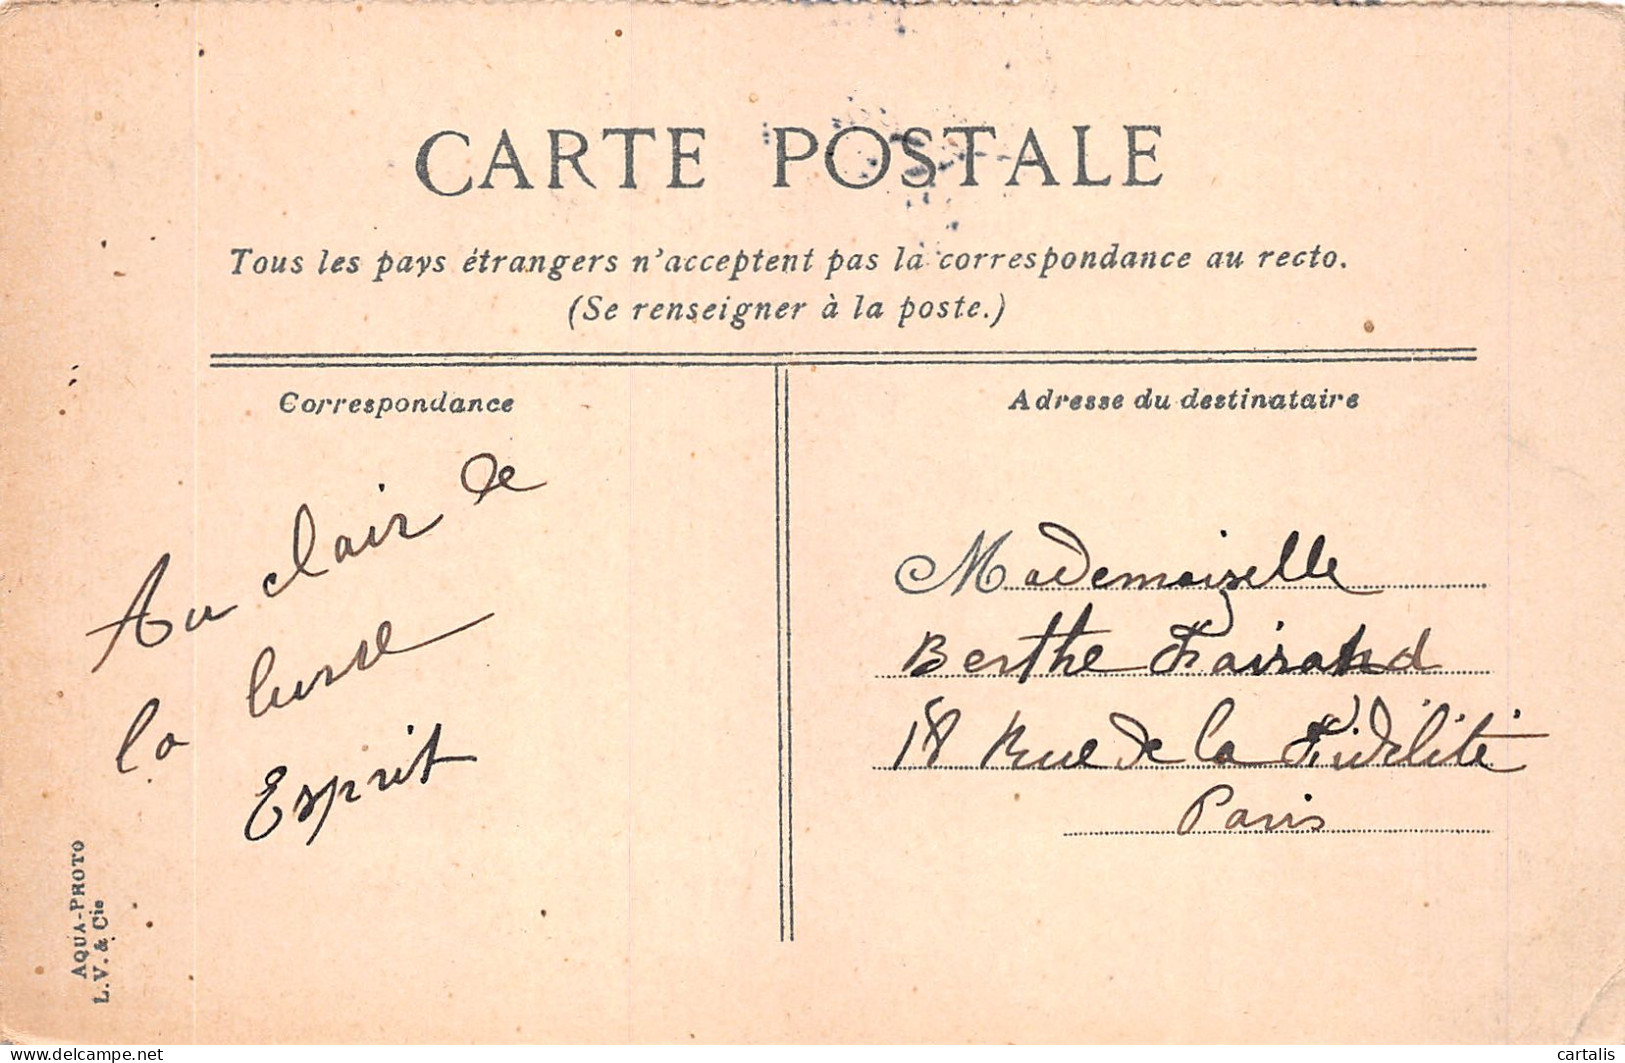 CARTE POSTALE
Tous les pays étrangers n'acceptent pas la correspondance au recto.
(Se renseigner à la poste.)
Correspondance
Au clair de
la
Esprit
Adresse du destinataire
Mademoiselle
Berthe
18 Rue de la Fidélité
Paris
AQUA-PHOTO
L. V. & Cie
delcampe.net
cartalis